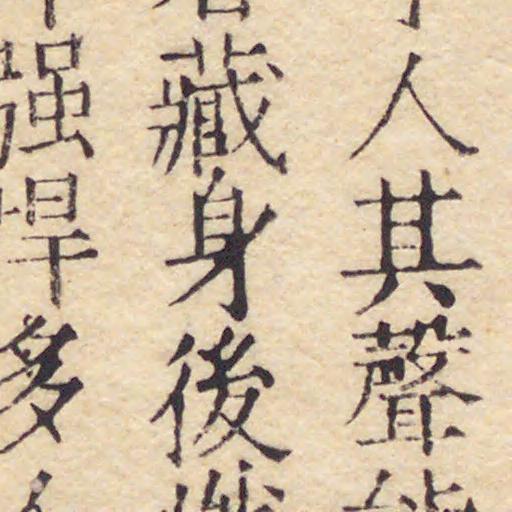 人其聲
藏身後
强悍多